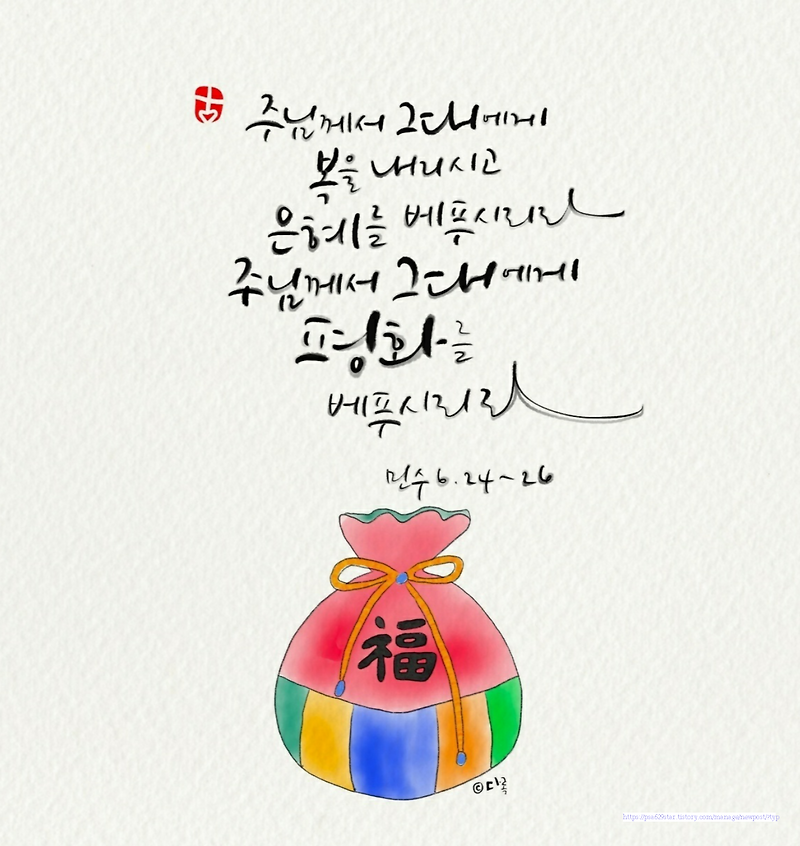 주님께서 그대에게
복을 내리시고
은혜를 베푸시리라
주님께서 그대에게
평화를
베푸시리라
민수 6.24~26
福